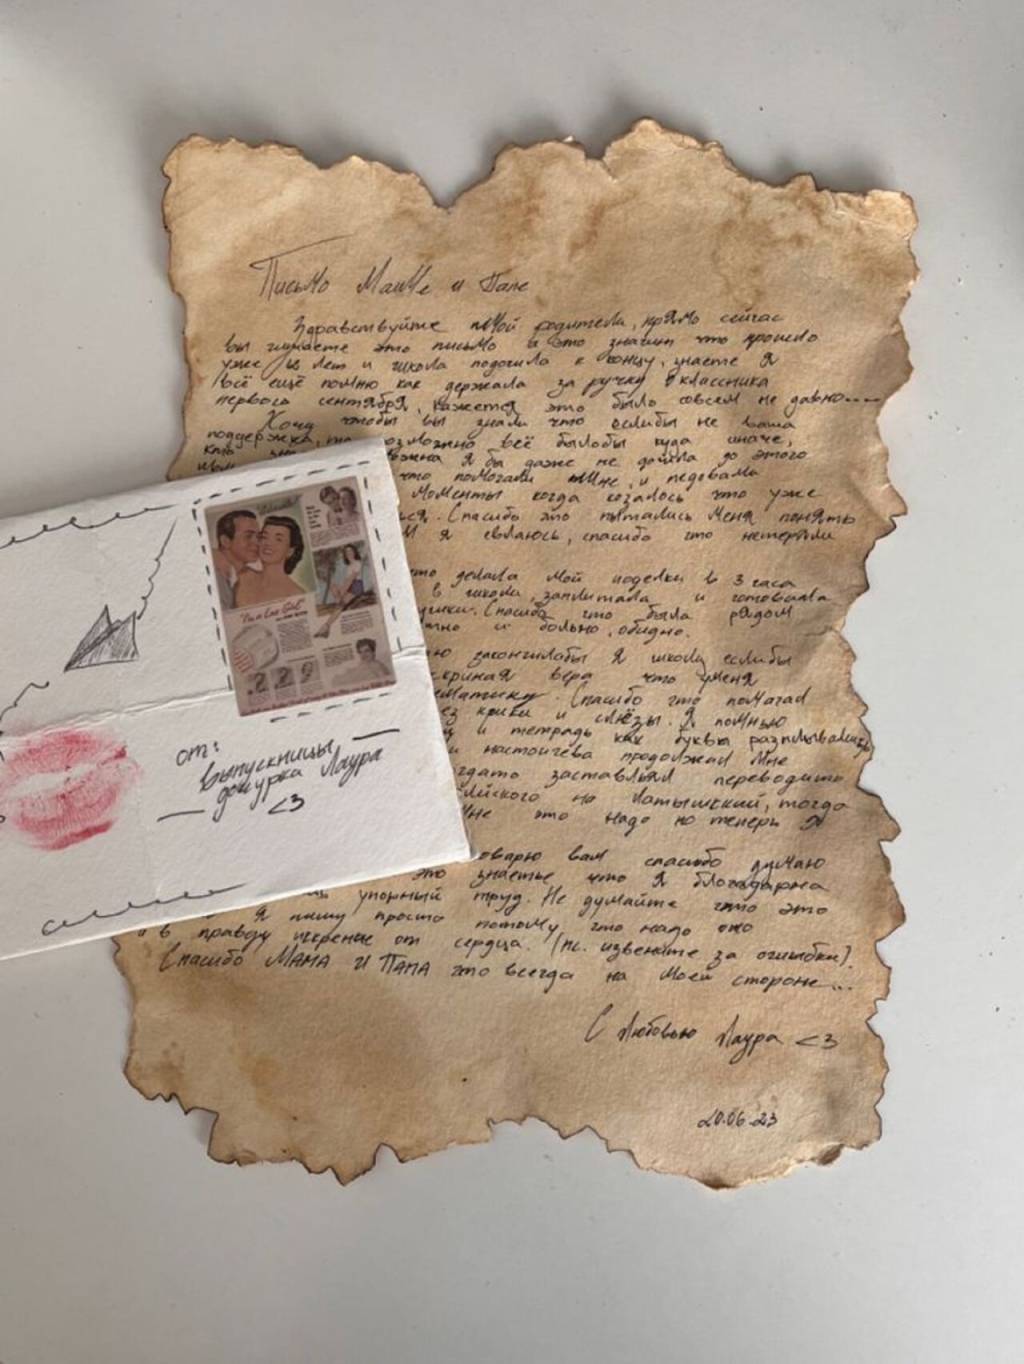 Письмо Маме и Папе
Здравствуйте мой родители, прямо сейчас
вы читаете это письмо а это значит что прошло
уже 12 лет и школа подошла к концу, знаете я
всё ещё помню как держала за ручку 9классника
первого сентября, кажется это было совсем не давно....
Хочу чтобы вы знали что еслибы не ваша
поддержка, возможно всё былобы куда иначе,
я бы даже не дошла до этого
что помогали мне, и
моменты когда козалось что уже
Спасибо что пытались меня понять
я евлаюсь, спасибо что нетеряли
что делала мой поделки в 3 часа
в школи, заплитала и готовила
Спасибо что была рядом
и больно, обидно.
закончилабы я школу еслибы
вера что уменя
Спасибо что помагал
крики и слёзы. Я помнью
и тетрадь как буквы разплывались
и настоичева продолжал мне
заставлял переводить
на латышский, тогда
мне это надо но теперь я
вам спасибо думаю
это знаетье что я благодарна
упорный труд. Не думайте что это
я пишу просто потому что надо оно
в правду искрение от сердца. (пс. извените за ошыбки).
Спасибо МАМА И ПАПА что всегда на моей стороне...
С Любовью Лаура <3
20.06.23
"I'm a Lux Girl"
от:
выпускницы
дочурка Лаура
<3